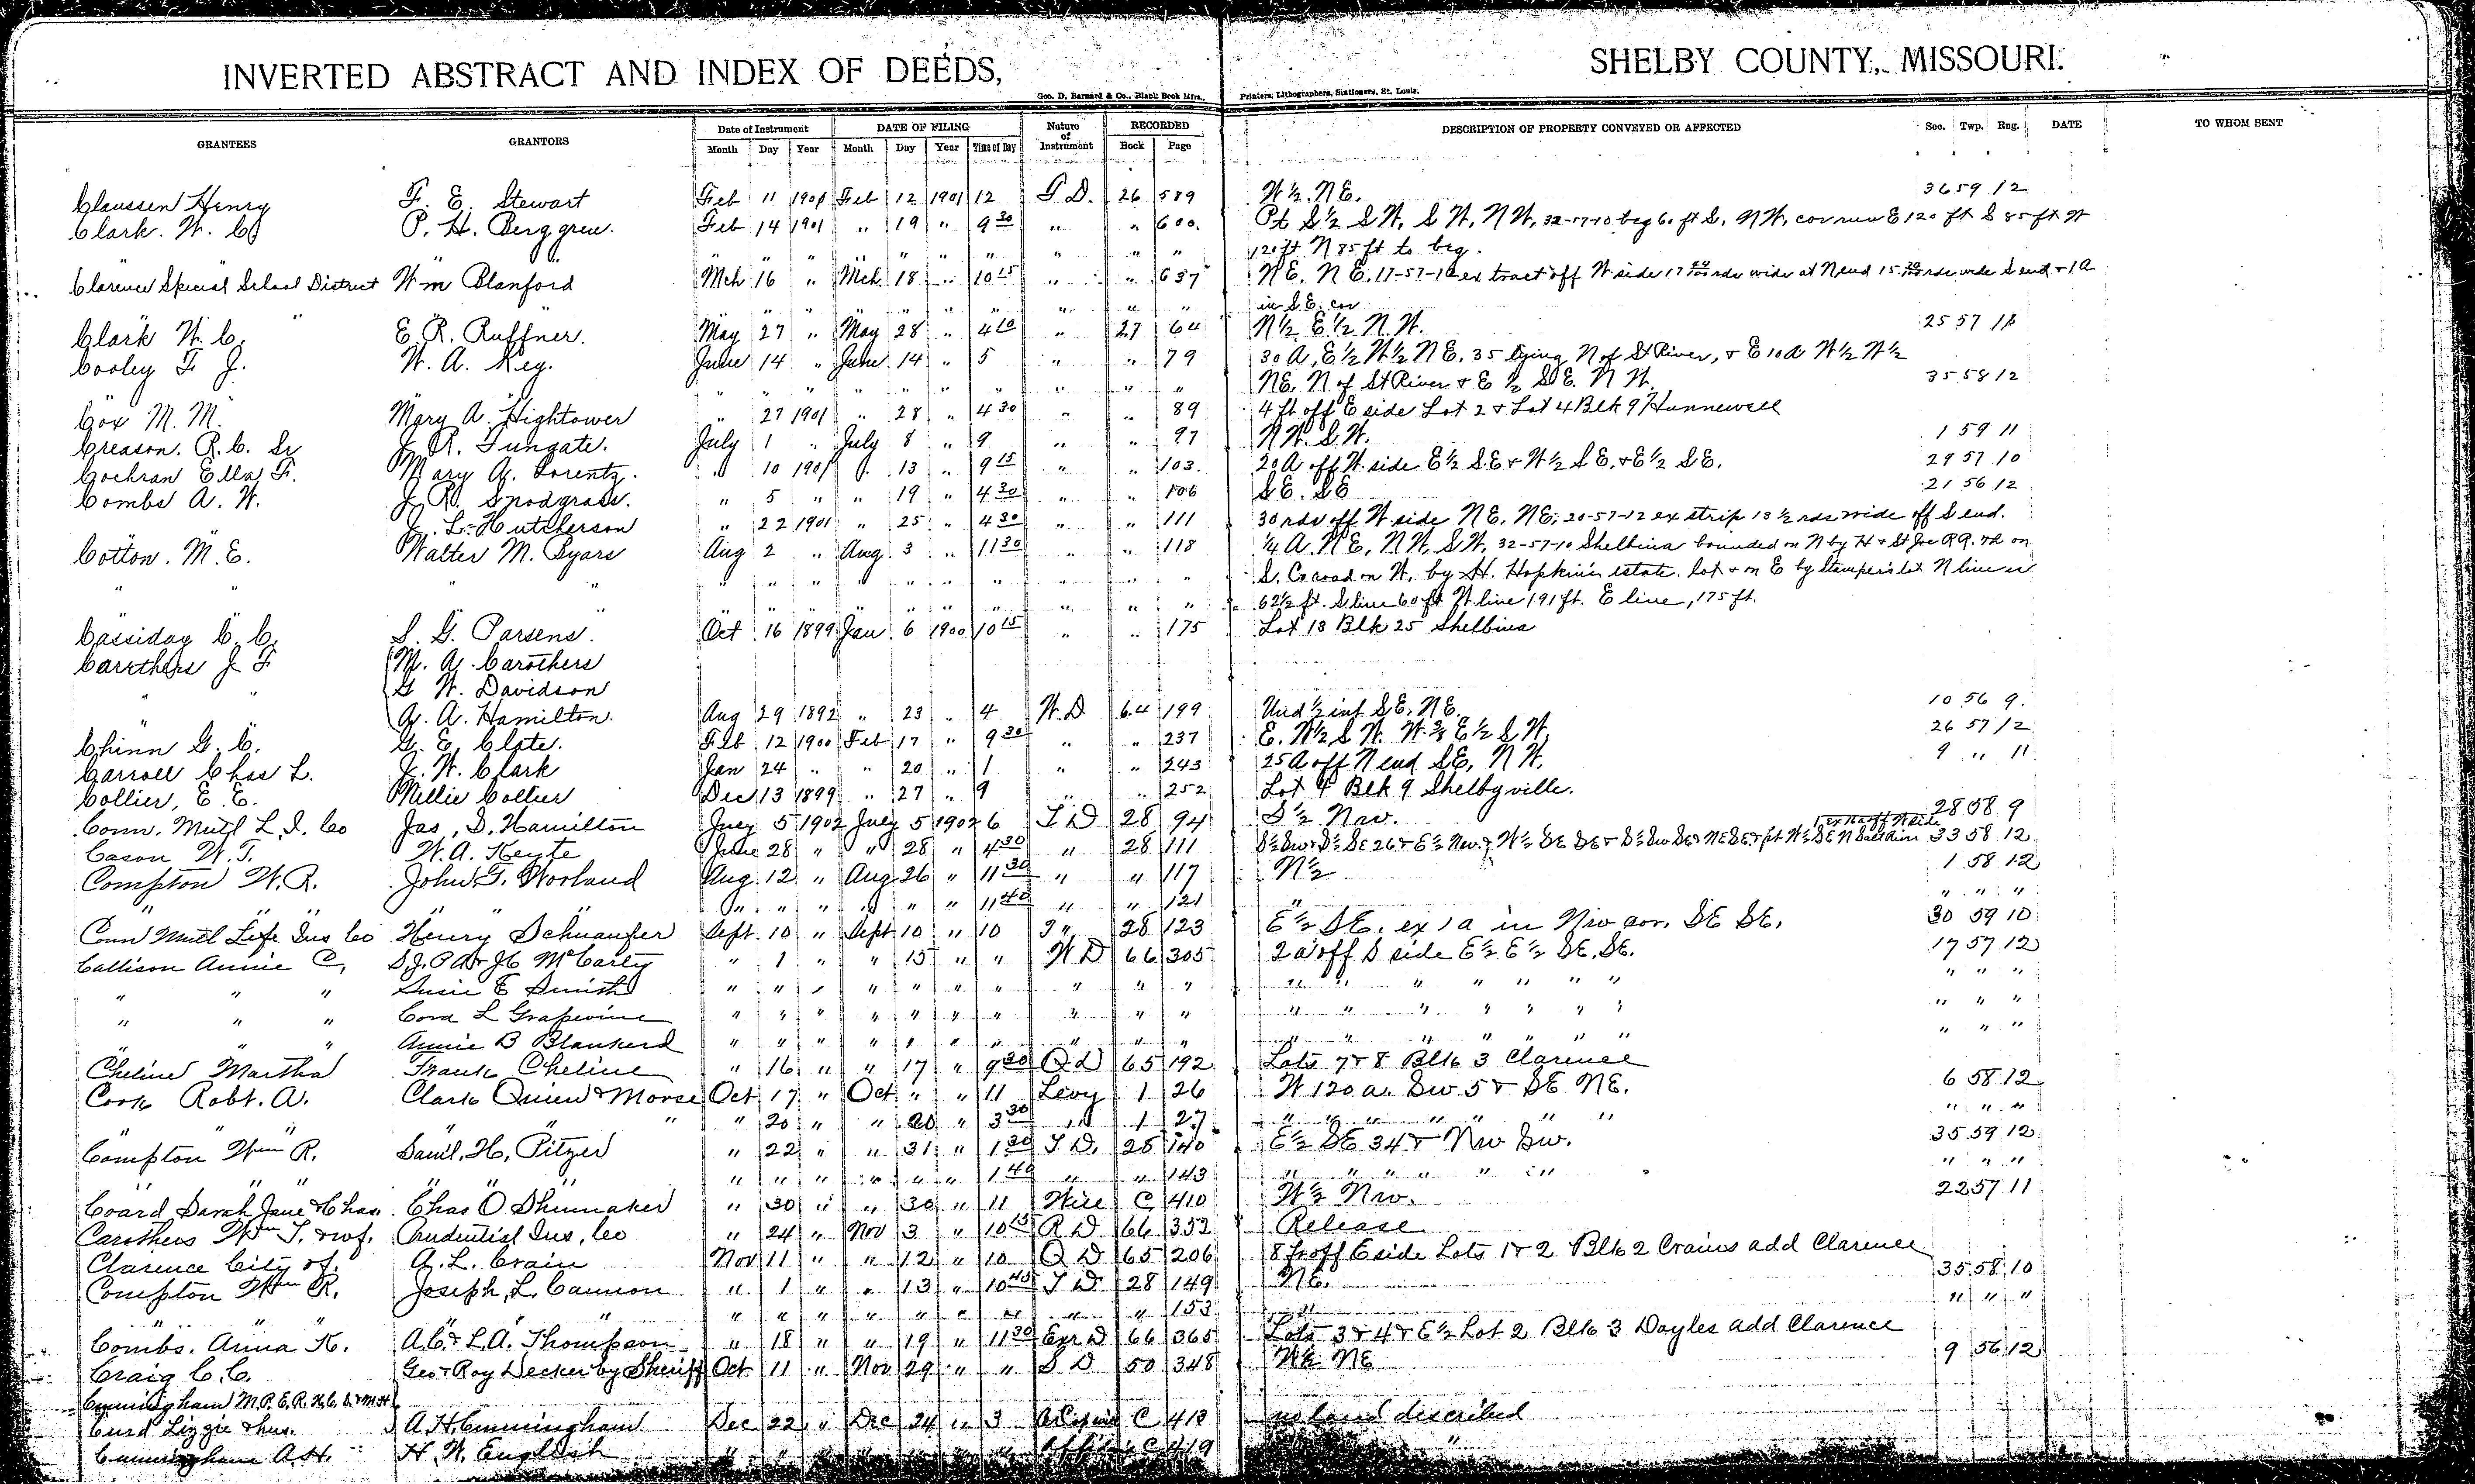 INVERTED ABSTRACT AND INDEX OF DEEDS, SHELBY COUNTY, MISSOURI.
Geo. D. Barnard & Co., Blank Book Mfrs., Printers, Lithographers, Stationers, St. Louis.
GRANTEES GRANTORS Date of Instrument DATE OF FILING Nature of Instrument RECORDED DESCRIPTION OF PROPERTY CONVEYED OR AFFECTED Sec. Twp. Rng. DATE TO WHOM SENT
Month Day Year Month Day Year Time of Day Book Page
Claussen Henry F. E. Stewart Feb 11 1901 Feb 12 1901 12 T D. 26 589 W ½ N E. 36 59 12
Clark. W. C. P. H. Berggren. Feb 14 1901 " 19 " 9 30 " " 600. Pt S ½ S W, S W, N W, 32-57-10 beg 60 ft S. N W, cor run E 120 ft S 85 ft W
" " " " " " " " " 120 ft N 85 ft to beg.
Clarence Special School District Wm Blanford Mch 16 " Mch 18 " 10 15 " " 637 N E. N E. 17-57-12 ex tract off W side 17 rds wide at N end 15 rds wide S end + 1 A
" " " " " " " " " " in S E. cor
Clark W. C. E. R. Ruffner. May 27 " May 28 " 4 10 " 27 64 N ½ E ½ N. W. 25 57 11
Cooley F J. W. A. Key. June 14 " June 14 " 5 " " 79 30 A, E ½ W ½ N E. 35 lying N of St River, + E 10 A W ½ W ½
" " " " " " " " " " NE. N of St River + E ½ S E. N W. 35 58 12
Cox M. M. Mary A. Hightower " 27 1901 " 28 " 4 30 " " 89 4 ft off E side Lot 2 + Lot 4 Blk 9 Hunnewell
Creason. R. C. Sr J. R. Tungate. July 1 " July 8 " 9 " " 97 N W. S. W. 1 59 11
Cochran Ella F. Mary A. Lorentz. " 10 1901 " 13 " 9 15 " " 103. 20 A off W. side E ½ S. E + W ½ S E. + E ½ S E. 29 57 10
Combs A. W. J. R. Snodgrass. " 5 " " 19 " 4 30 " " 106 S E. S E 21 56 12
J. L. Hutcherson " 22 1901 " 25 " 4 30 " " 111 30 rds off W side N E. N E. 20-57-12 ex strip 13 ½ rds wide off S end.
Cotton. M. E. Walter M. Byars Aug 2 " Aug. 3 " 11 30 " " 118 ¼ A. N E, N W, S W, 32-57-10 Shelbina bounded on N by H + St Joe R R. on
" " " " " " " " " " " " S. Co road on W. by H. Hopkins estate. lot + on E by Stamper's lot N line is
" " " " " " " " " " 62 ½ ft. S line 60 ft W line 191 ft. E line, 175 ft.
Cassiday C. C. S. G. Parsens. Oct. 16 1899 Jan 6 1900 10 15 " " 175 Lot 13 Blk 25 Shelbina
Carothers J F M. A. Carothers
" " G W. Davidson
A. A. Hamilton. Aug 29 1892 " 23 " 4 W. D 64 199 Und ½ int S E. N E. 10 56 9.
Chinn G. C. G. E. Clate. Feb 12 1900 Feb 17 " 9 30 " " 237 E. W ½ S W. W ⅔ E ½ S W, 26 57 12
Carroll Chas L. J. W. Clark Jan 24 " " 20 " 1 " " 243 25 A off N end S E, N W. 9 " 11
Collier, E. E. Millie Collier Dec 13 1899 " 27 " 9 " " 252 Lot 4 Blk 9 Shelbyville.
Conn. Mutl L. I. Co Jas. S. Hamilton July 5 1902 July 5 1902 6 T D 28 94 S ½ Nw. 28 58 9
Cason W. T. W. A. Keyte June 28 " " 28 " 4 30 " 28 111 33 58 12
Compton W. R. John T. Worland Aug 12 " Aug 26 " 11 30 " " 117 N ½ 1 58 12
" " " " " " " " " " " 11 40 " " 121 " " " "
Conn Mutl Life Ins Co Henry Schnaufer Sept 10 " Sept 10 " 10 T " 28 123 E ½ S E. ex 1 a in Nw cor. S E SE. 30 59 10
Callison Annie C, S. J. P A + J C McCarty " 1 " " 15 " " W D 66 305 2 a off S side E ½ E ½ S E. SE. 17 57 12
" " " Susie E Smith " " " " " " " " " " " " " " " " " " "
" " " Cora L Grapevine " " " " " " " " " " " " " " " " " " "
" " " Annie B Blankerd " " " " " " " " " " " " " " " " " " "
Cheline Martha Frank Cheline " 16 " " 17 " 9 30 Q D 65 192 Lots 7 + 8 Blk 3 Clarence
Cook Robt. A. Clark Quinn + Morse Oct 17 " Oct " " 11 Levy 1 26 W 120 a. Sw 5 + S E NE. 6 58 12
" " " " " " 20 " " 20 " 3 30 " 1 27 " " " " " " " " " "
Compton Wm R. Saml. H. Pitzer " 22 " " 31 " 1 30 T D. 28 140 E ½ S E 34 + Nw Sw. 35 59 12
" " " " " " " " " " " 1 40 " " 143 " " " " " " " "
Coard Sarah Jane + Chas. Chas O Shumaker " 30 " " 30 " 11 Will C 410 W ½ Nw. 22 57 11
Carothers Wm T. + wf. Prudential Ins. Co " 24 " Nov 3 " 10 15 R D 66 352 Release
Clarence City of. A. L. Crain Nov 11 " " 12 " 10 Q D 65 206 8 ft off E side Lots 1 + 2 Blk 2 Crains add Clarence
Compton Wm R. Joseph L. Cannon " 1 " " 13 " 10 45 T D 28 149 N E. 35 58 10
" " " " " " " " " " " " " " 153 " " " "
Combs. Anna K. A. C. + L. A. Thompson " 18 " " 19 " 11 30 Exr D 66 365 Lots 3 + 4 + E ½ Lot 2 Blk 3 Doyles add Clarence
Craig C. C. Geo + Roy Decker by Sheriff Oct 11 " Nov 29 " " S D 50 348 NE 9 56 12
Cunningham M. P. E. R.
Curd Lizzie + hus. A. H. Cunningham Dec 22 " Dec 24 " 3 C 418 no land described
Cunningham A. H. H. W. English " " " " " " " C 419 "